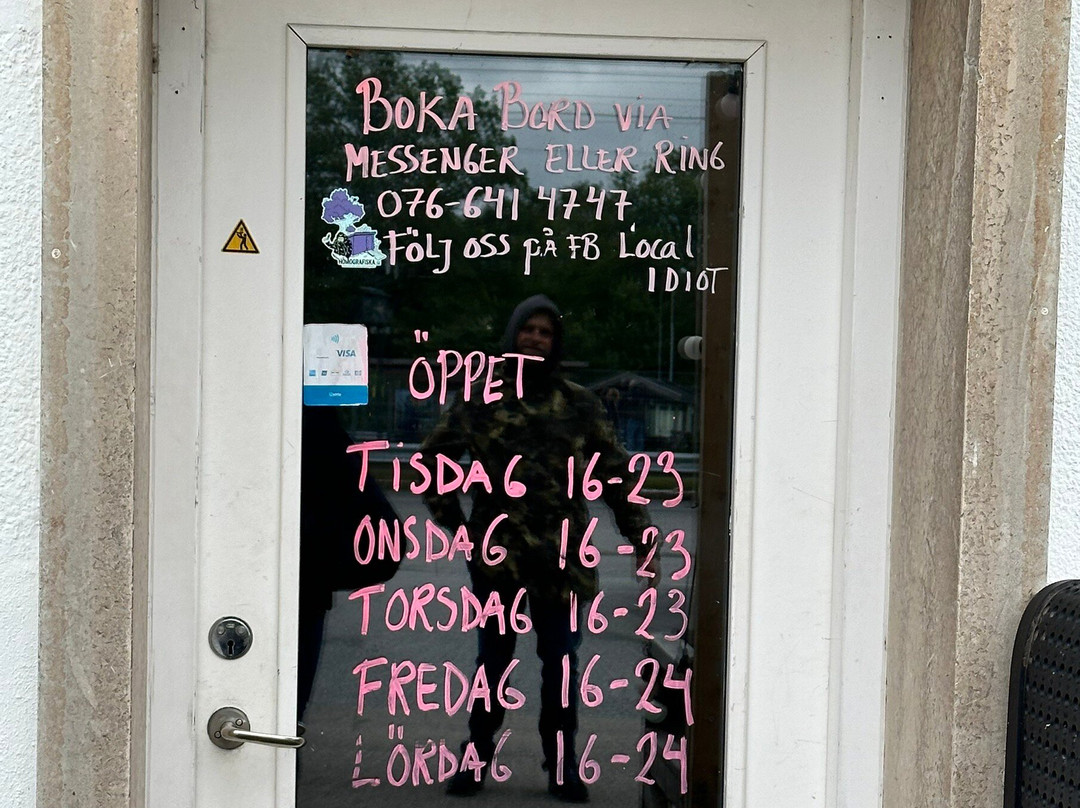 BOKA BORD VIA
MESSENGER ELLER RING
076-641 4747
FÖLJ OSS PÅ FB LOCAL
IDIOT
HOMOGRAFISKA
VISA
ÖPPET
TISDAG 16-23
ONSDAG 16-23
TORSDAG 16-23
FREDAG 16-24
LÖRDAG 16-24